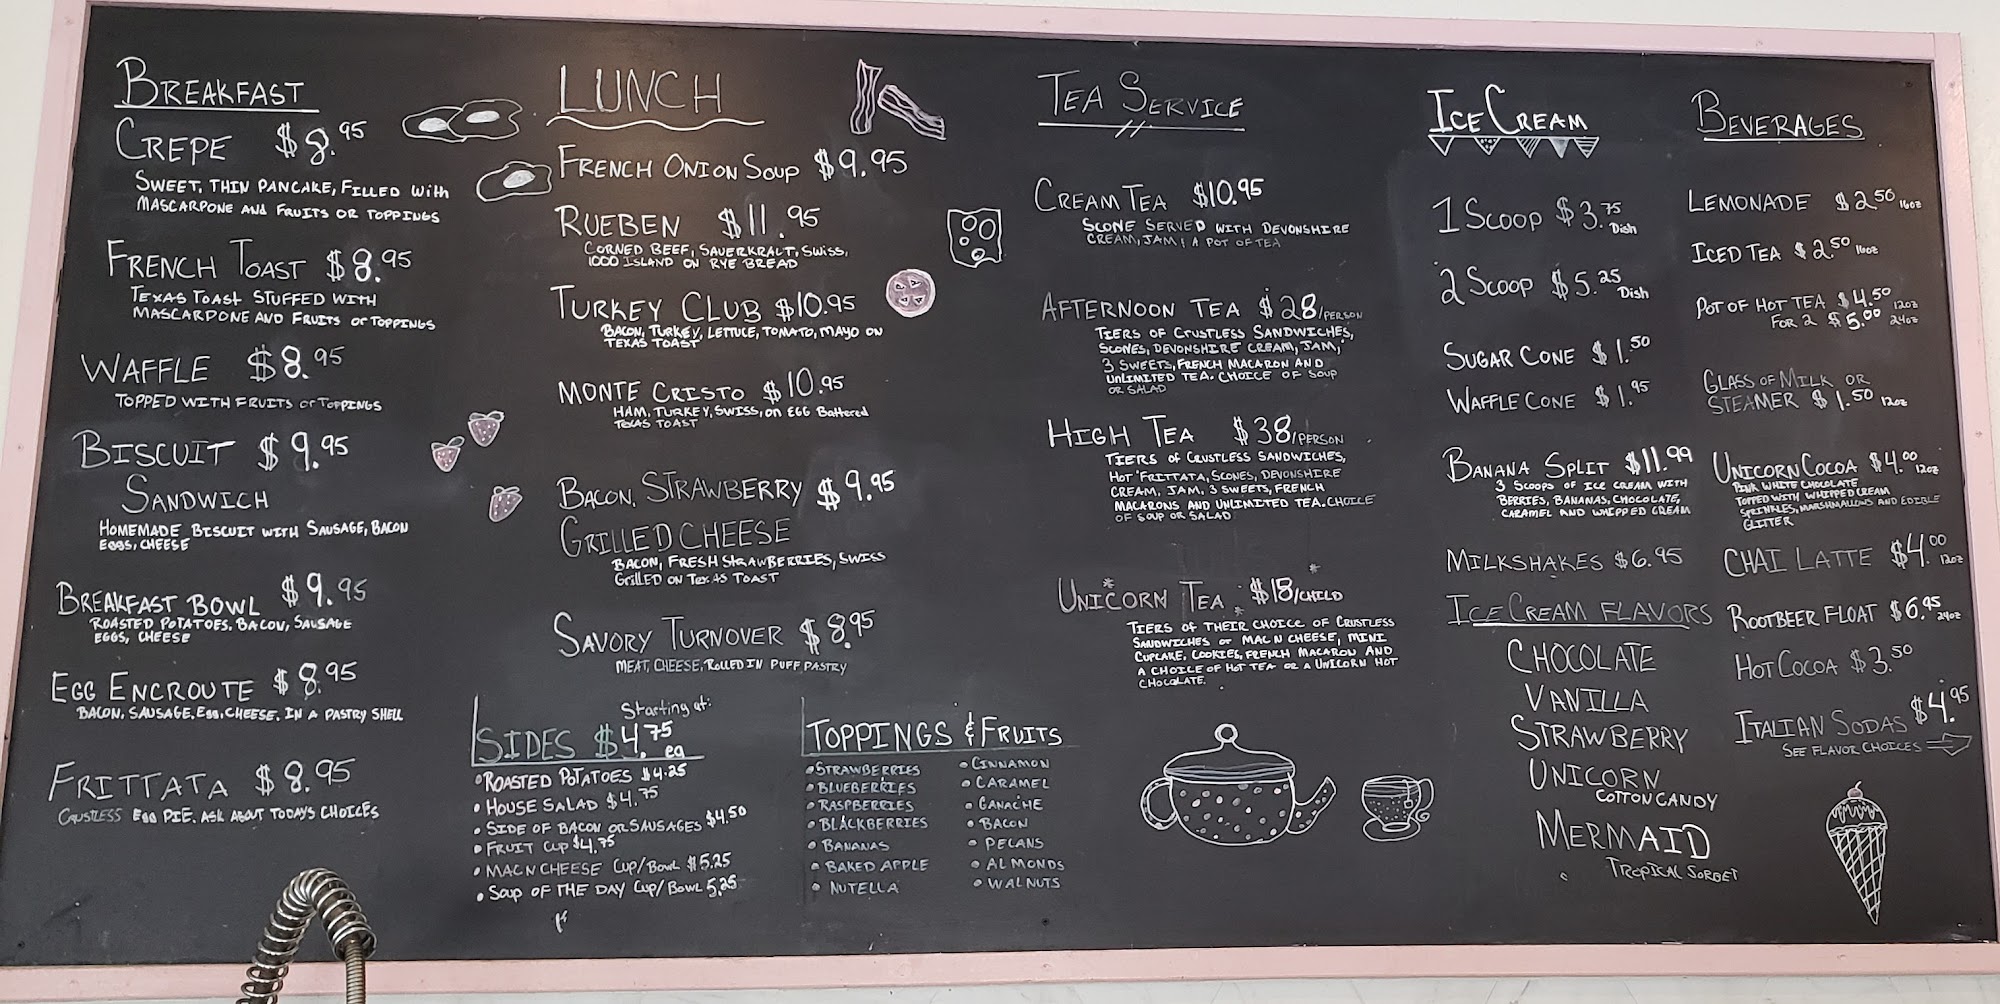 BREAKFAST
CREPE $8.95
SWEET, THIN PANCAKE, FILLED with
MASCARPONE AND FRUITS OR TOPPINGS
FRENCH TOAST $8.95
TEXAS TOAST STUFFED WITH
MASCARPONE AND FRUITS or TOPPINGS
WAFFLE $8.95
TOPPED WITH FRUITS or TOPPINGS
BISCUIT $9.95
SANDWICH
HOMEMADE BISCUIT WITH SAUSAGE, BACON
EGGS, CHEESE
BREAKFAST BOWL $9.95
ROASTED POTATOES. BACON, SAUSAGE
EGGS, CHEESE
EGG ENCROUTE $8.95
BACON, SAUSAGE, EGG, CHEESE, IN A PASTRY SHELL
FRITTATA $8.95
CRUSTLESS EGG PIE. ASK ABOUT TODAYS CHOICES
LUNCH
FRENCH ONION SOUP $9.95
RUEBEN $11.95
CORNED BEEF, SAUERKRALT, SWISS,
1000 ISLAND ON RYE BREAD
TURKEY CLUB $10.95
BACON, TURKEY, LETTUCE, TOMATO, MAYO ON
TEXAS TOAST
MONTE CRISTO $10.95
HAM, TURKEY, SWISS, on EGG Battered
TEXAS TOAST
BACON, STRAWBERRY $9.95
GRILLED CHEESE
BACON, FRESH STRAWBERRIES, SWISS
GrillED ON TEXAS TOAST
SAVORY TURNOVER $8.95
MEAT, CHEESE, ROLLED IN PUFF PASTRY
Starting at:
SIDES $4.75 ea
• ROASTED POTATOES $4.25
• HOUSE SALAD $4.75
• SIDE OF BACON OR SAUSAGES $4.50
• FRUIT CUP $4.75
• MAC N CHEESE Cup/Bowl $5.25
• SOUP OF THE DAY Cup/Bowl 5.25
TOPPINGS & FRUITS
• STRAWBERRIES
• BLUEBERRIES
• RASPBERRIES
• BLACKBERRIES
• BANANAS
• BAKED APPLE
• NUTELLA
• CINNAMON
• CARAMEL
• GANACHE
• BACON
• PECANS
• ALMONDS
• WALNUTS
TEA SERVICE
CREAM TEA $10.95
SCONE SERVED WITH DEVONSHIRE
CREAM, JAM & A POT OF TEA
AFTERNOON TEA $28/PERSON
TIERS OF CRUSTLESS SANDWICHES,
SCONES, DEVONSHIRE CREAM, JAM,
3 SWEETS, FRENCH MACARON AND
UNLIMITED TEA. CHOICE OF SOUP
OR SALAD
HIGH TEA $38/PERSON
TIERS OF CRUSTLESS SANDWICHES,
HOT FRITTATA, SCONES, DEVONSHIRE
CREAM, JAM, 3 SWEETS, FRENCH
MACARONS AND UNLIMITED TEA. CHOICE
OF SOUP OR SALAD
UNICORN TEA $18/CHILD
TIERS OF THEIR CHOICE OF CRUSTLESS
SANDWICHES or MAC N CHEESE, MINI
CUPCAKE, COOKIES, FRENCH MACARON AND
A CHOICE OF HOT TEA OR A UNICORN HOT
CHOCOLATE.
ICE CREAM
1 SCOOP $3.75 Dish
2 SCOOP $5.25 Dish
SUGAR CONE $1.50
WAFFLE CONE $1.95
BANANA SPLIT $11.99
3 SCOOPS OF ICE CREAM WITH
BERRIES, BANANAS, CHOCOLATE,
CARAMEL AND WHIPPED CREAM
MILKSHAKES $6.95
ICE CREAM FLAVORS
CHOCOLATE
VANILLA
STRAWBERRY
UNICORN
COTTON CANDY
MERMAID
TROPICAL SORBET
BEVERAGES
LEMONADE $2.50 16oz
ICED TEA $2.50 16oz
POT OF HOT TEA $4.50 12oz
FOR 2 $5.00 24oz
GLASS OF MILK OR
STEAMER $1.50 12oz
UNICORN COCOA $4.00 12oz
PINK WHITE CHOCOLATE
TOPPED WITH WHIPPED CREAM
SPRINKLES, MARSHMALLOWS AND EDIBLE
GLITTER
CHAI LATTE $4.00 12oz
ROOTBEER FLOAT $6.95 24oz
HOT COCOA $3.50
ITALIAN SODAS $4.95
SEE FLAVOR CHOICES